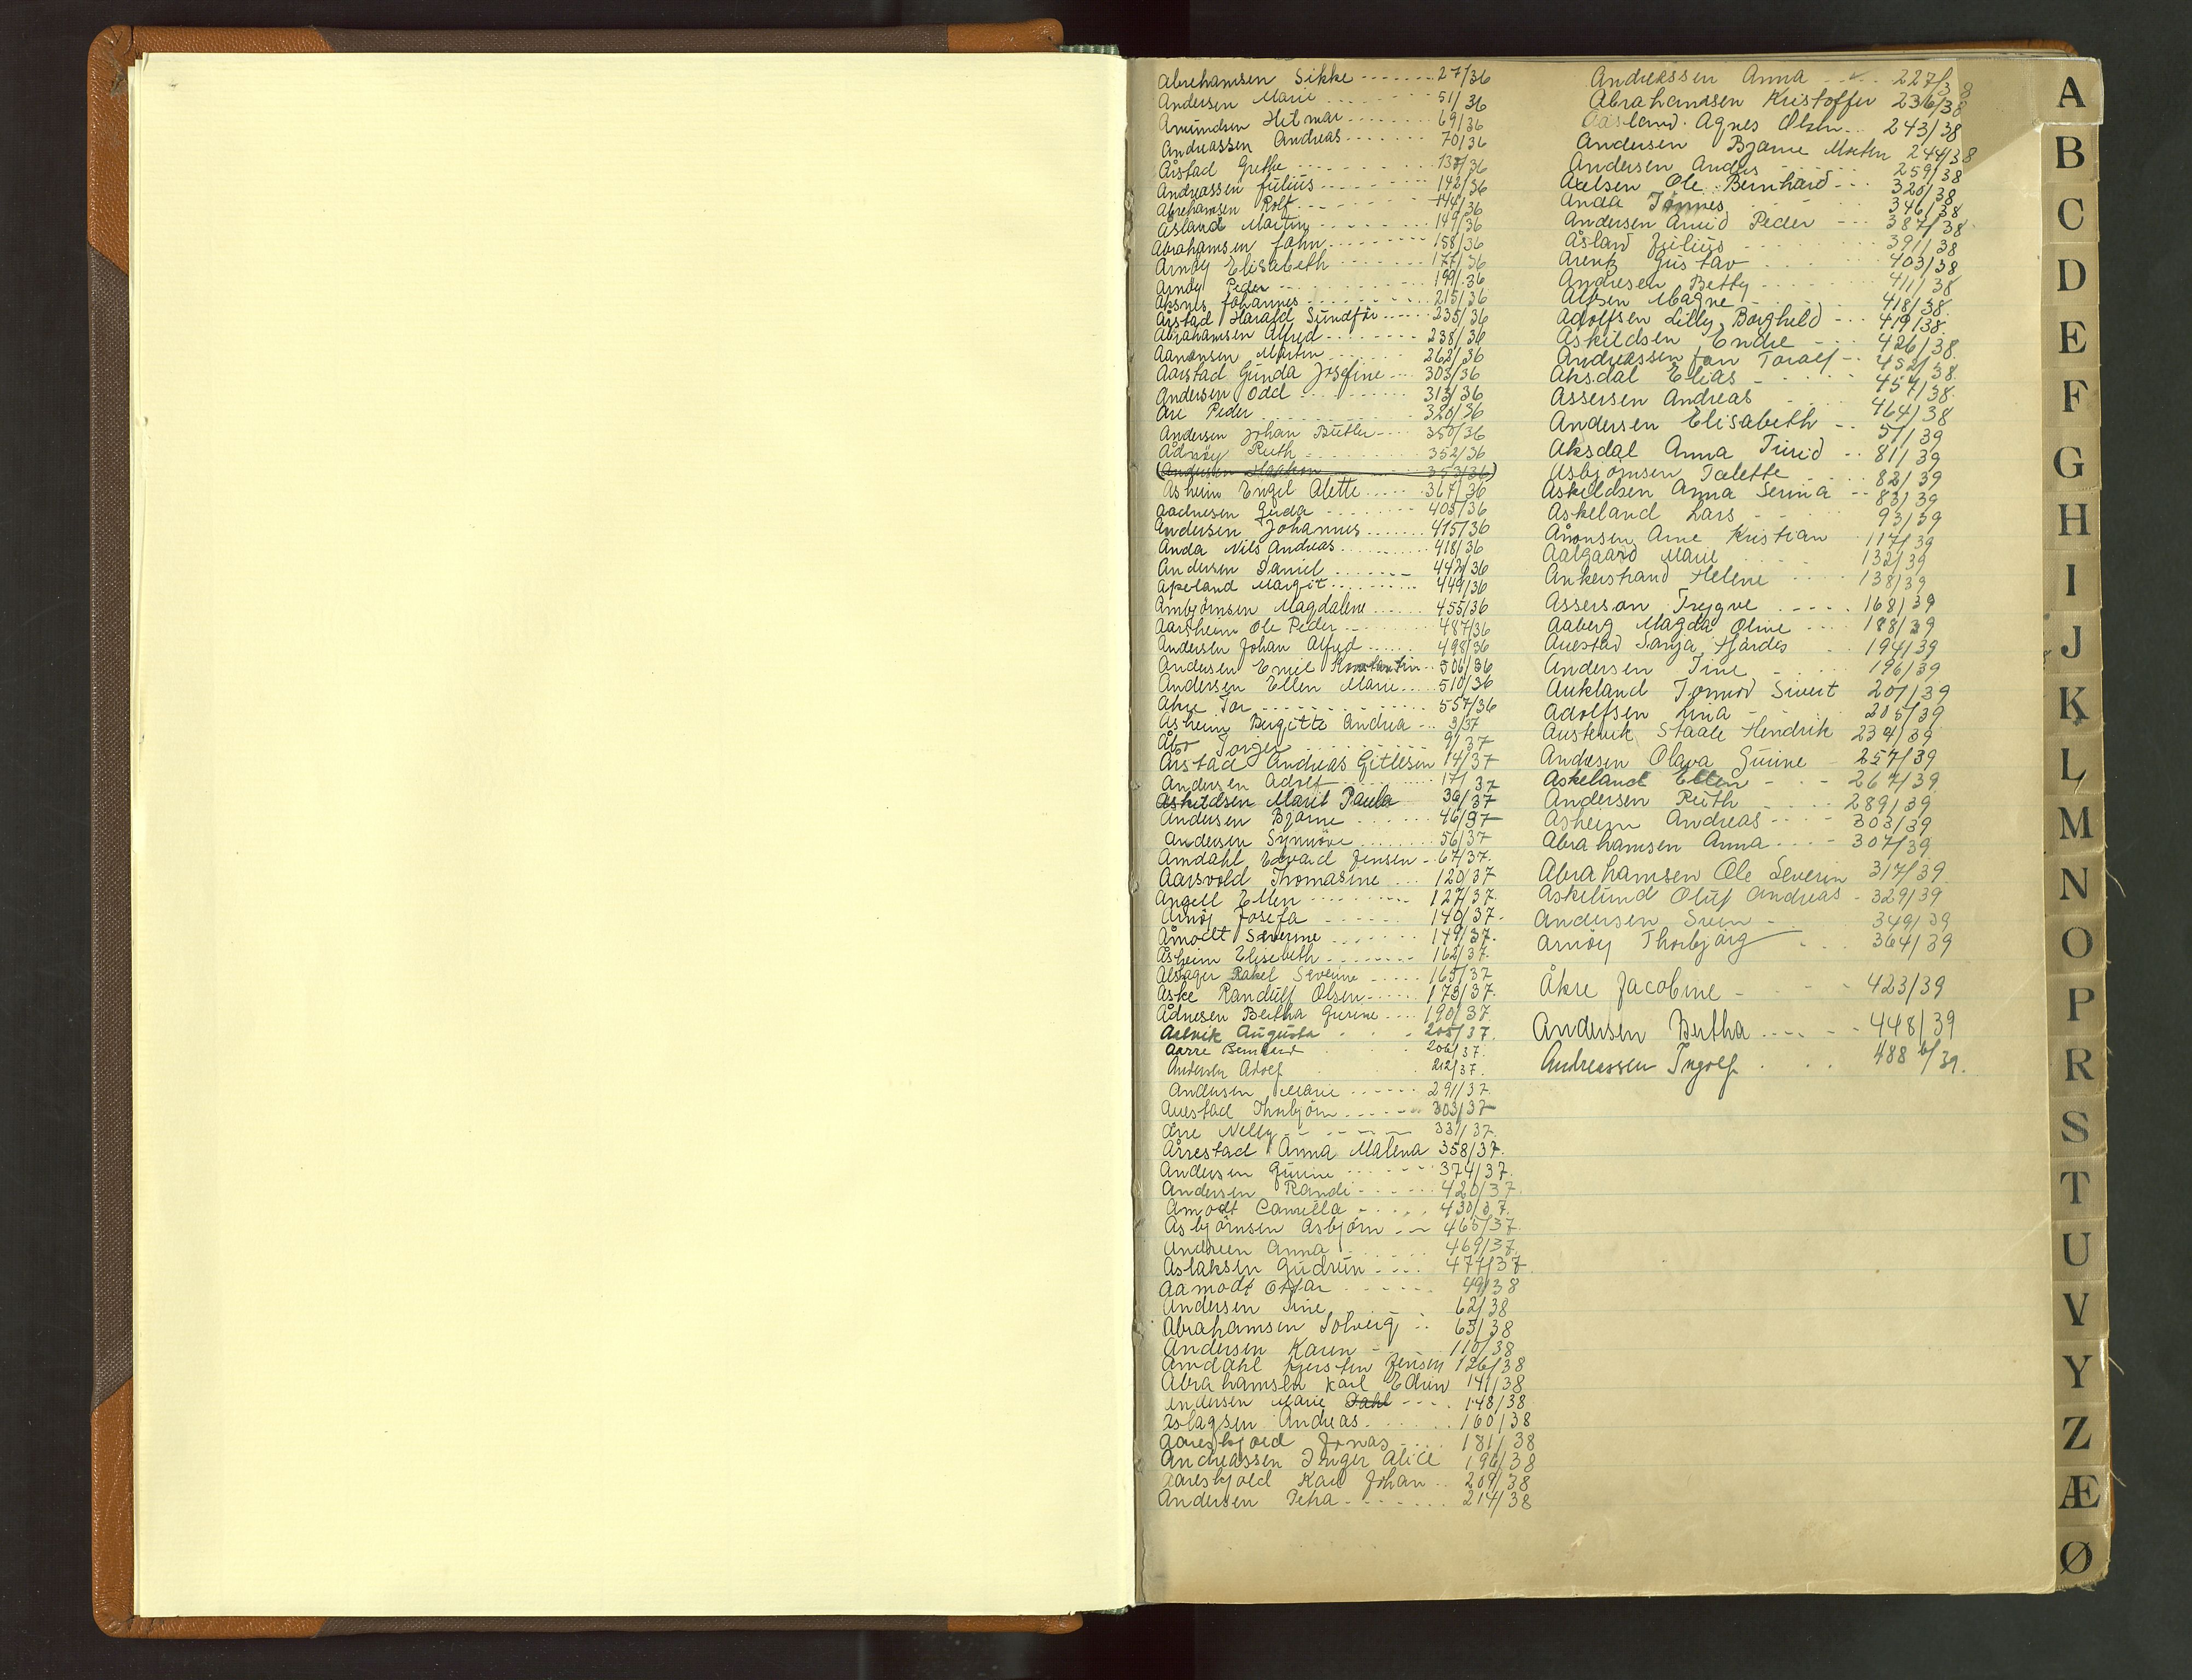 Abrehamsen Sikke ------- 27/36
Andersen Marie 51/36
Amundsen Hilmar 69/36
Andreassen Andreas 70/36
Årstad Grethe 137/36
Andreassen Julius 142/36
Abrehamsen Rolf 144/36
Åsland Martin 149/36
Abrahamsen John 158/36
Arnøy Elisabeth 177/36
Arnøy Peder 199/36
Aksnes Johannes 215/36
Årstad Harald Sundför 235/36
Abrahamsen Alfred 238/36
Aanonsen Martin 262/36
Aarstad Gunda Josefine 303/36
Andersen Odd 313/36
Are Peder 320/36
Andersen Johan Butler 350/36
Ådnøy Ruth 352/36
(Andersen Haakon 353/36)
Åsheim Engel Alette 367/36
Aadnesen Gurda 405/36
Andersen Johannes 415/36
Anda Nils Andreas 418/36
Andersen Daniel 447/36
Apeland Margit 449/36
Ambjörnsen Magdalene 455/36
Aarsheim Ole Peder 487/36
Andersen Johan Alfred 498/36
Andersen Emil Konstantin 506/36
Andersen Ellen Marie 510/36
Akre Tor 557/36
Åsheim Birgitte Andrea 3/37
Åbø Torger 9/37
Årstad Andreas Gitlesen 14/37
Andersen Adolf 17/37
Askildsen Marit Paula 36/37
Andersen Bjarne 46/37
Andersen Synnøve 56/37
Amdahl Edvard Jensen 67/37
Aarsvold Thomasine 120/37
Angell Ellen 127/37
Arnøy Josefa 140/37
Åmodt Severine 149/37
Åsheim Elisebeth 162/37
Alsager Rakel Severine 165/37
Aske Randulf Olsen 173/37
Ådnesen Bertha Gurine 190/37
Aalvik Augusta 205/37
Aarre Bernhard 206/37
Andersen Adolf 212/37
Andersen Marie 291/37
Auestad Thorbjørn 303/37
Åre Nelly 331/37
Årrestad Anna Malena 358/37
Andersen Gurine 374/37
Andersen Randi 420/37
Åmodt Camilla 430/37
Asbjörnsen Asbjörn 465/37
Andreen Anna 469/37
Aslaksen Gudrun 477/37
Aamodt Ottar 49/38
Andersen Tine 62/38
Abrahamsen Solveig 65/38
Andersen Karen 110/38
Amdahl Kjersten Jensen 126/38
Abrahamsen Karl Edvin 141/38
Andersen Marie Dahl 148/38
Aslagsen Andreas 160/38
Aareskjold Jonas 181/38
Andreassen Inger Alice 196/38
Aareskjold Karl Johan 209/38
Andersen Petra 214/38
Andreassen Anna 227/38
Abrahamsen Kristoffer 236/38
Aasland Agnes Olsen 243/38
Andersen Bjarne Morten 244/38
Andersen Anders 259/38
Axelsen Ole Bernhard 320/38
Anda Tønnes 346/38
Andersen Arvid Peder 387/38
Åsland Julius 391/38
Arentz Gustav 403/38
Andresen Betty 411/38
Alfsen Magne 418/38
Adolfsen Lilly Borghild 419/38
Askildsen Endre 426/38
Andreassen Jan Toralf 452/38
Aksdal Elias 457/38
Assersen Andreas 464/38
Andersen Elisabeth 51/39
Aksdal Anna Turid 81/39
Asbjörnsen Talette 82/39
Askildsen Anna Serina 83/39
Askeland Lars 93/39
Ånonsen Arne Kristian 117/39
Aalgaard Marie 132/39
Ankerstrand Helene 138/39
Asserson Trygve 168/39
Aaberg Magda Oline 188/39
Auestad Tanja Hjørdis 194/39
Andersen Tine 196/39
Aukland Tormod Sivert 201/39
Adolfsen Lina 205/39
Austevik Staale Hendrik 234/39
Andersen Olava Gurine 257/39
Askeland Ellen 267/39
Andersen Ruth 289/39
Åsheim Andreas 303/39
Abrahamsen Anna 307/39
Abrahamsen Ole Severin 317/39
Askelund Oluf Andreas 329/39
Andersen Svein 349/39
Arnøy Thorbjørg 364/39
Åkre Jacobine 423/39
Andersen Bertha 448/39
Andreassen Ingolf 488 b/39
A
B
C
D
E
F
G
H
I
J
K
L
M
N
O
P
R
S
T
U
V
Y
Z
Æ
Ø